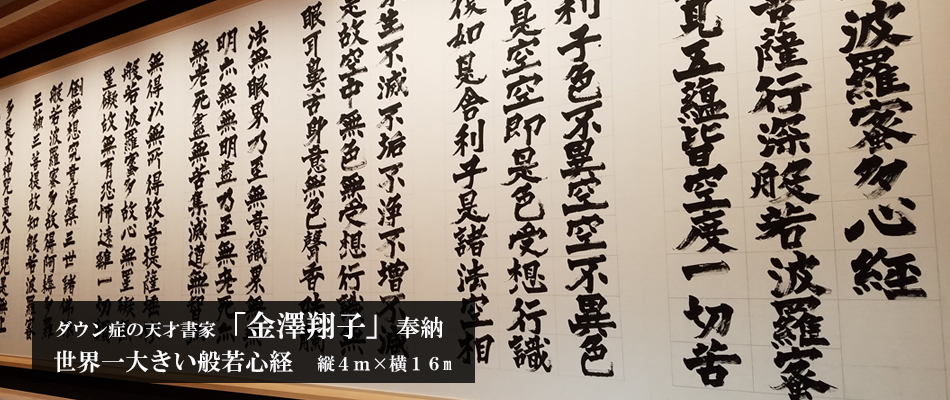 波羅蜜多心經
菩薩行深般若波羅蜜
見五蘊皆空度一切苦
利子色不異空空不異色
是空空即是色受想行識
復如是舍利子是諸法空相
生不滅不垢不淨不增不減
是故空中無色無受想行識
眼耳鼻舌身意無色聲香味
法無眼界乃至無意識界無
明亦無無明盡乃至無老死
無老死盡無苦集滅道無智
無得以無所得故菩提薩埵
般若波羅蜜多故心無罣礙
罣礙故無有恐怖遠離一切
倒夢想究竟涅槃三世諸佛
般若波羅蜜多故得阿耨多羅
三藐三菩提故知般若波羅蜜
多是大神咒是大明咒是無上
ダウン症の天才書家「金澤翔子」奉納
世界一大きい般若心経 縦4m×横16m